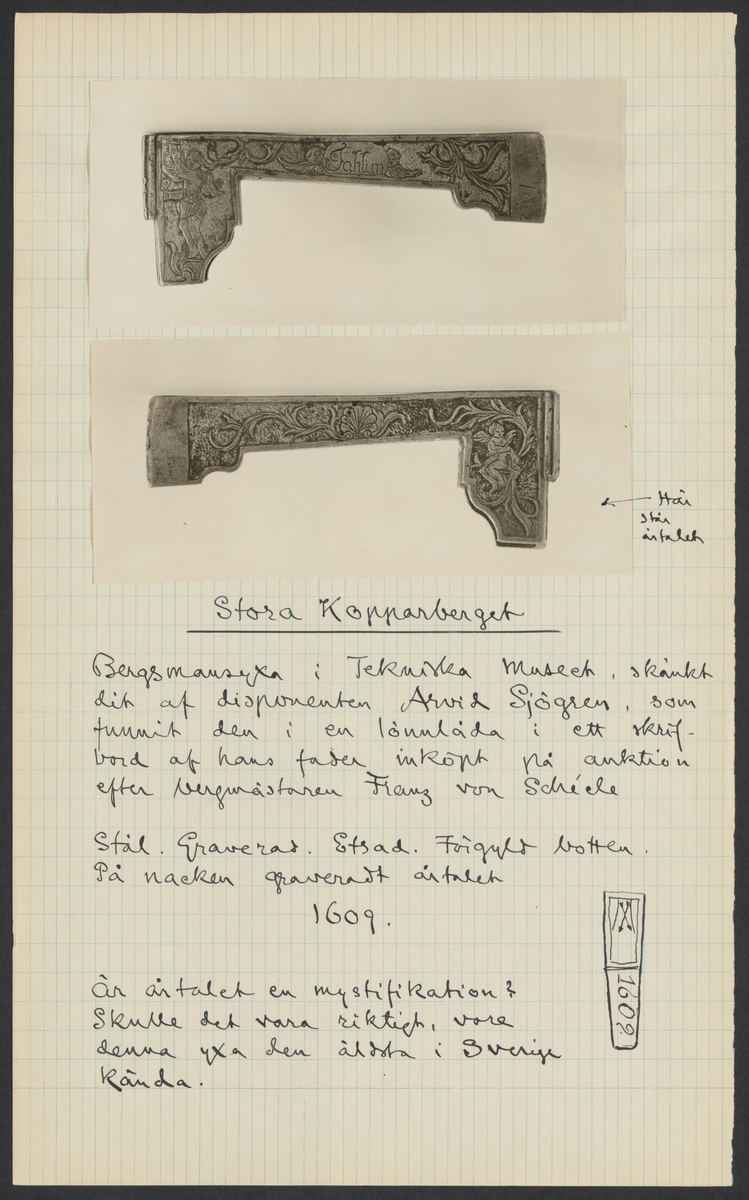 Fahlun
Här
står
årtalet
Stora Kopparberget
Bergsmansyxa i Tekniska Museet, skänkt
dit af disponenten Arvid Sjögren, som
funnit den i en lönnlåda i ett skrif-
bord af hans fader inköpt på auktion
efter bergmästaren Franz von Schéele
Stål. Graverad. Etsad. Förgyld botten.
På nacken graveradt årtalet
1609.
1609
Är årtalet en mystifikation?
Skulle det vara riktigt, vore
denna yxa den äldsta i Sverige
kända.